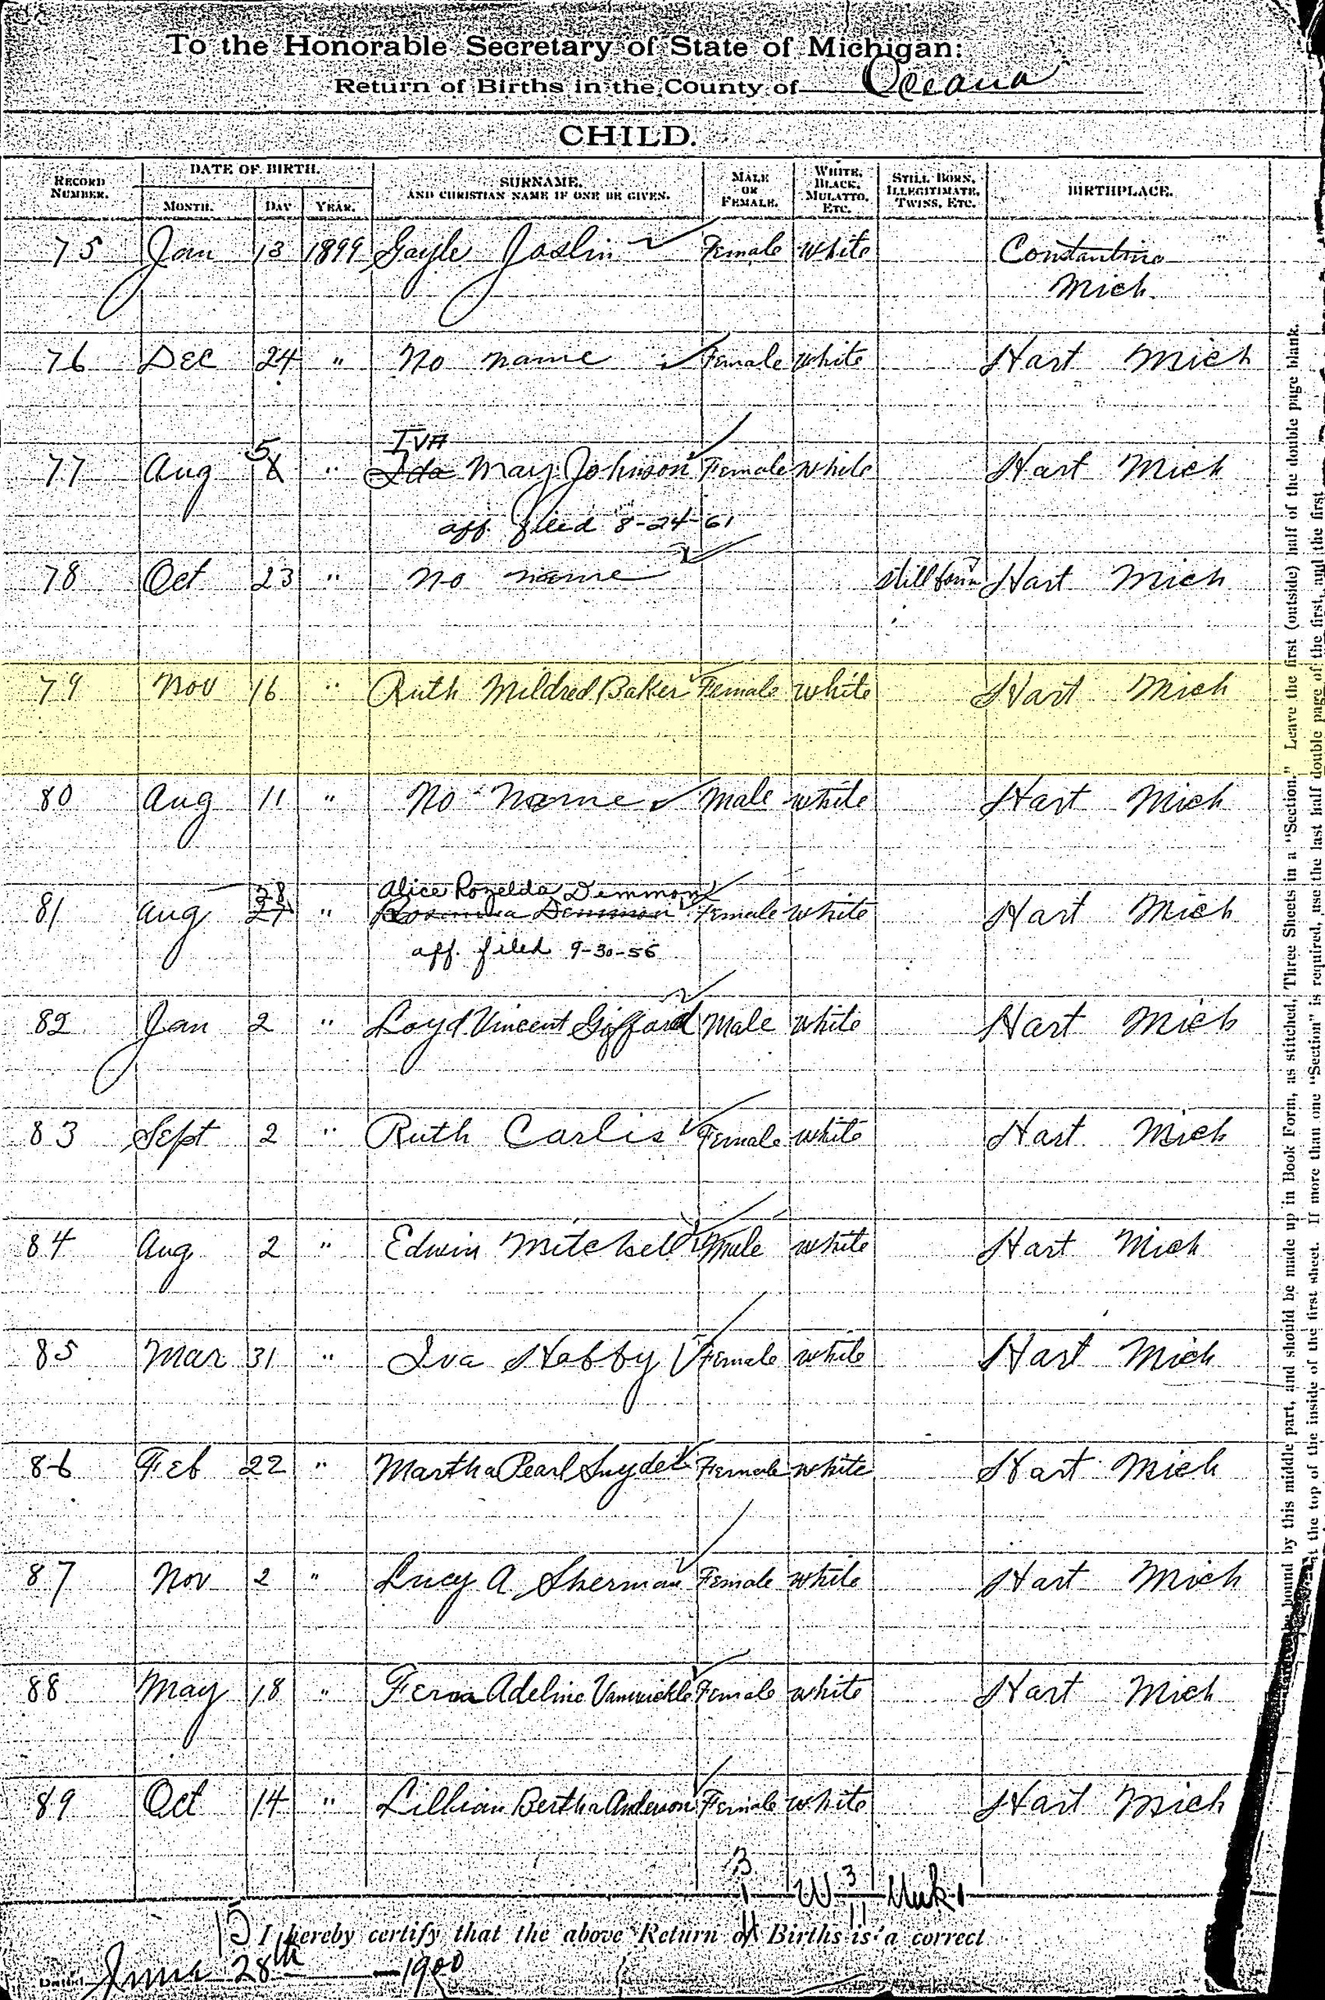 To the Honorable Secretary of State of Michigan:
Return of Births in the County of Oceana
CHILD.
RECORD NUMBER.
DATE OF BIRTH.
MONTH.
DAY
YEAR.
SURNAME, AND CHRISTIAN NAME IF ONE BE GIVEN.
MALE OR FEMALE.
WHITE, BLACK, MULATTO, ETC.
STILL BORN, ILLEGITIMATE, TWINS, ETC.
BIRTHPLACE.
75 Jan 13 1899 Gayle Joslin Female White Constantine
Mich.
76 Dec 24 " No name Female White Hart Mich
IVA
5
77 Aug 6 " Ida May Johnson Female White Hart Mich
aff. filed 8-24-61
78 Oct 23 " No name Still born Hart Mich
79 Nov 16 " Ruth Mildred Baker Female White Hart Mich
80 Aug 11 " No Name Male White Hart Mich
28 Alice Rozelda Demmon
81 Aug 27 " Demmon Female White Hart Mich
aff. filed 9-30-56
82 Jan 2 " Loyd Vincent Gifford Male White Hart Mich
83 Sept 2 " Ruth Carlis Female White Hart Mich
84 Aug 2 " Edwin Mitchell Male White Hart Mich
85 Mar 31 " Iva Female White Hart Mich
86 Feb 22 " Martha Pearl Snyder Female White Hart Mich
87 Nov 2 " Lucy A Sherman Female White Hart Mich
88 May 18 " Adeline Female White Hart Mich
89 Oct 14 " Lillian Bertha Anderson Female White Hart Mich
3 W 3 1
11 11
15 I hereby certify that the above Return of Births is a correct
Dated June 28th 1900
be bound by this middle part, and should be made up in Book Form, as stitched, Three Sheets in a "Section." Leave the first (outside) half of the double page blank.
at the top of the inside of the first sheet. If more than one "Section" is required, use the last half double page of the first, and the first